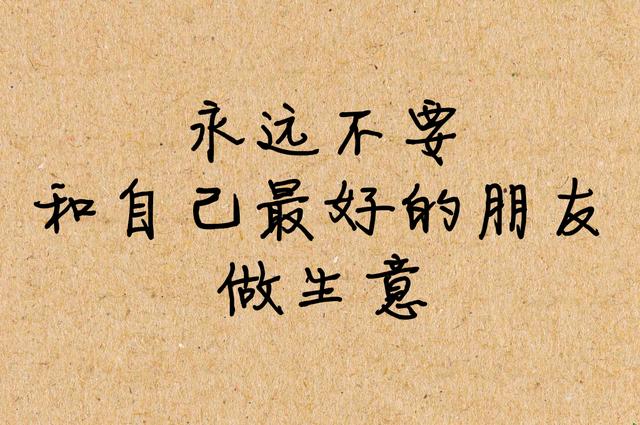 永远不要
和自己最好的朋友
做生意